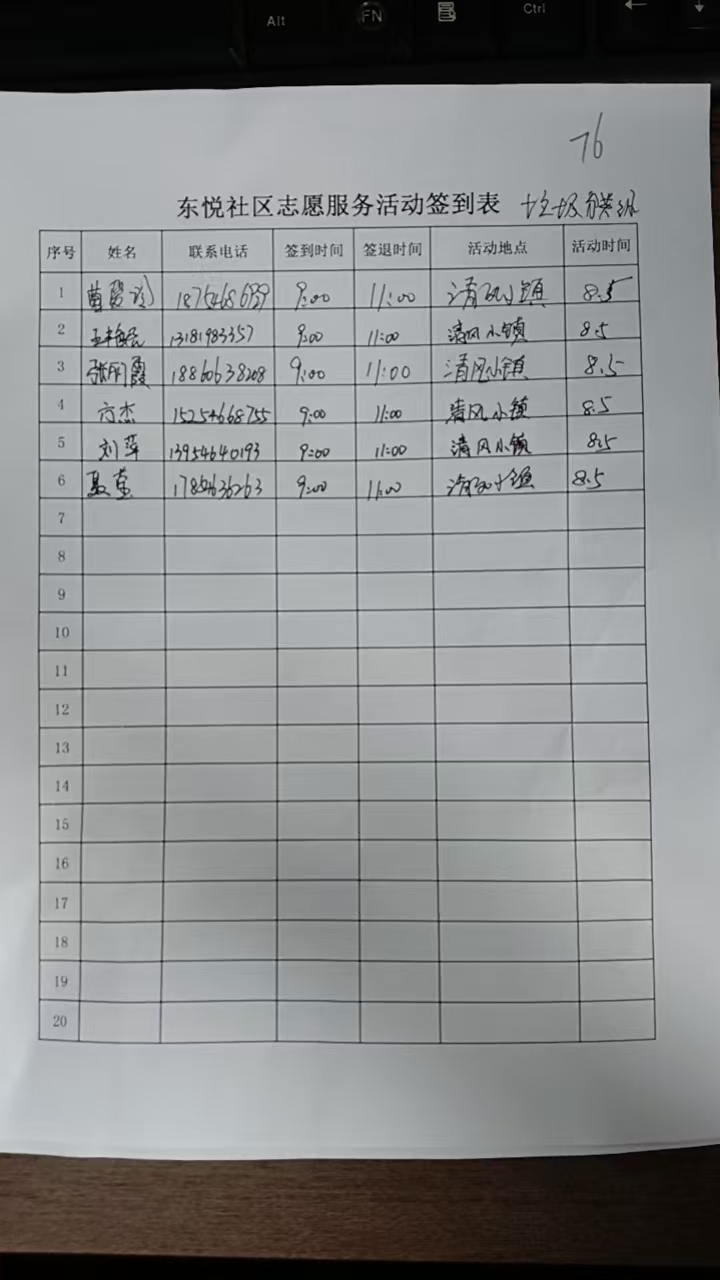 Alt FN Ctrl
76
东悦社区志愿服务活动签到表 垃圾分类
序号 姓名 联系电话 签到时间 签退时间 活动地点 活动时间
1 9:00 11:00 清风小镇 8.5
2 13181983357 9:00 11:00 清风小镇 8.5
3 张丽霞 18860638208 9:00 11:00 清风小镇 8.5
4 方杰 15254668755 9:00 11:00 清风小镇 8.5
5 刘萍 13954640193 9:00 11:00 清风小镇 8.5
6 9:00 11:00 清风小镇 8.5
7
8
9
10
11
12
13
14
15
16
17
18
19
20